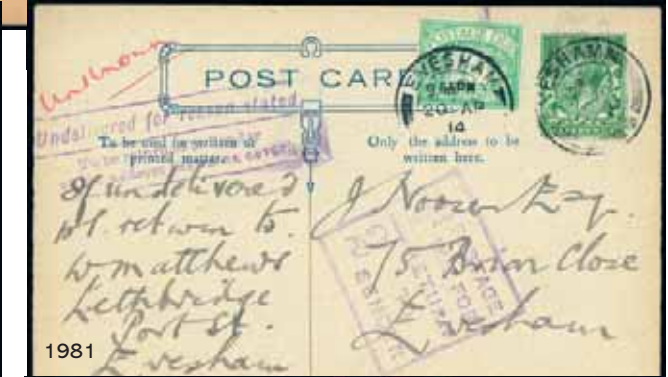 Unknown
POST CARD
POSTAGE
EVESHAM
20 AP
14
EVESHAM
Undelivered for reason stated
To be used for written or
printed matter.
Only the address to be
written here.
If undelivered
pl. return to.
W Matthews
Lethbridge
Port St.
Evesham
J Esq.
75 Close
Evesham
1981